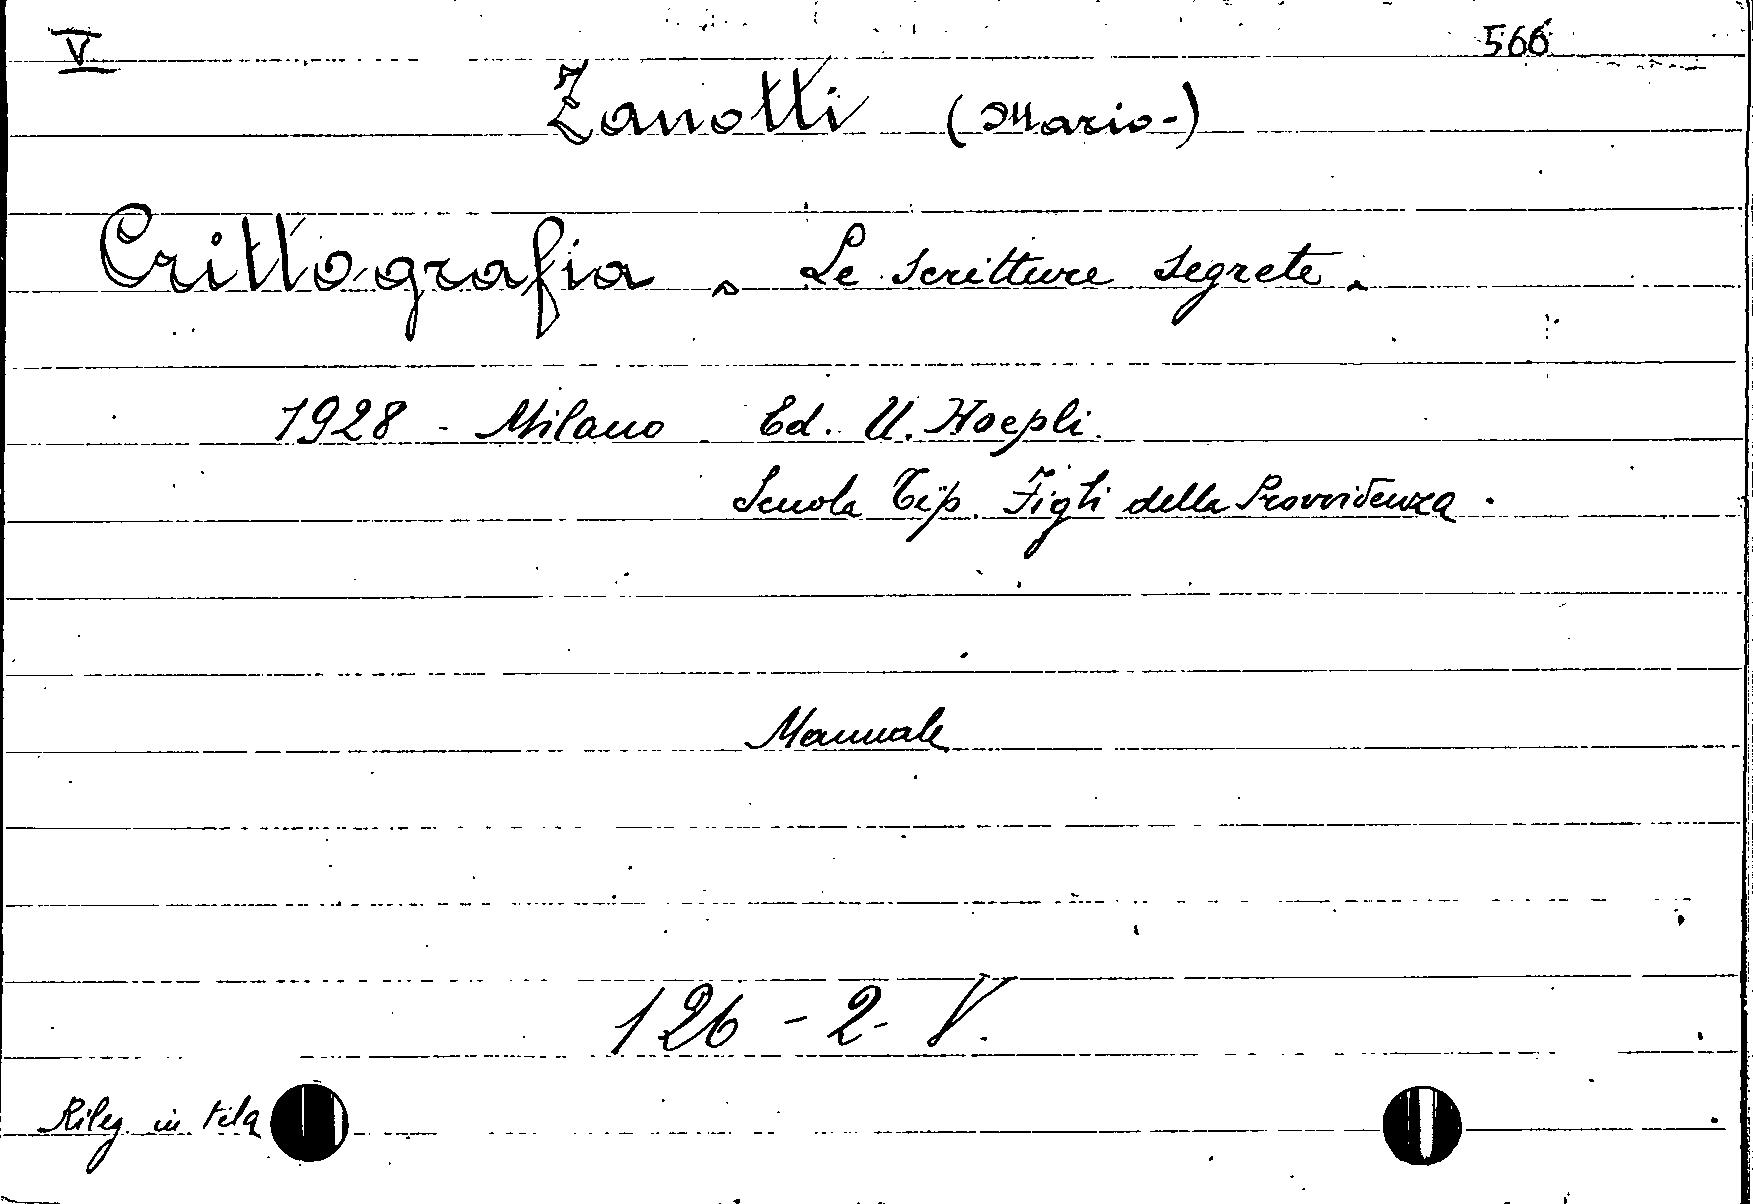 V 566
Zanotti (Mario-)
Crittografia - Le scritture segrete.
1928 - Milano Ed. U. Hoepli.
Scuola Tip. Figli della Provvidenza.
Manuale
126 - 2 - V.
Rileg. in tela